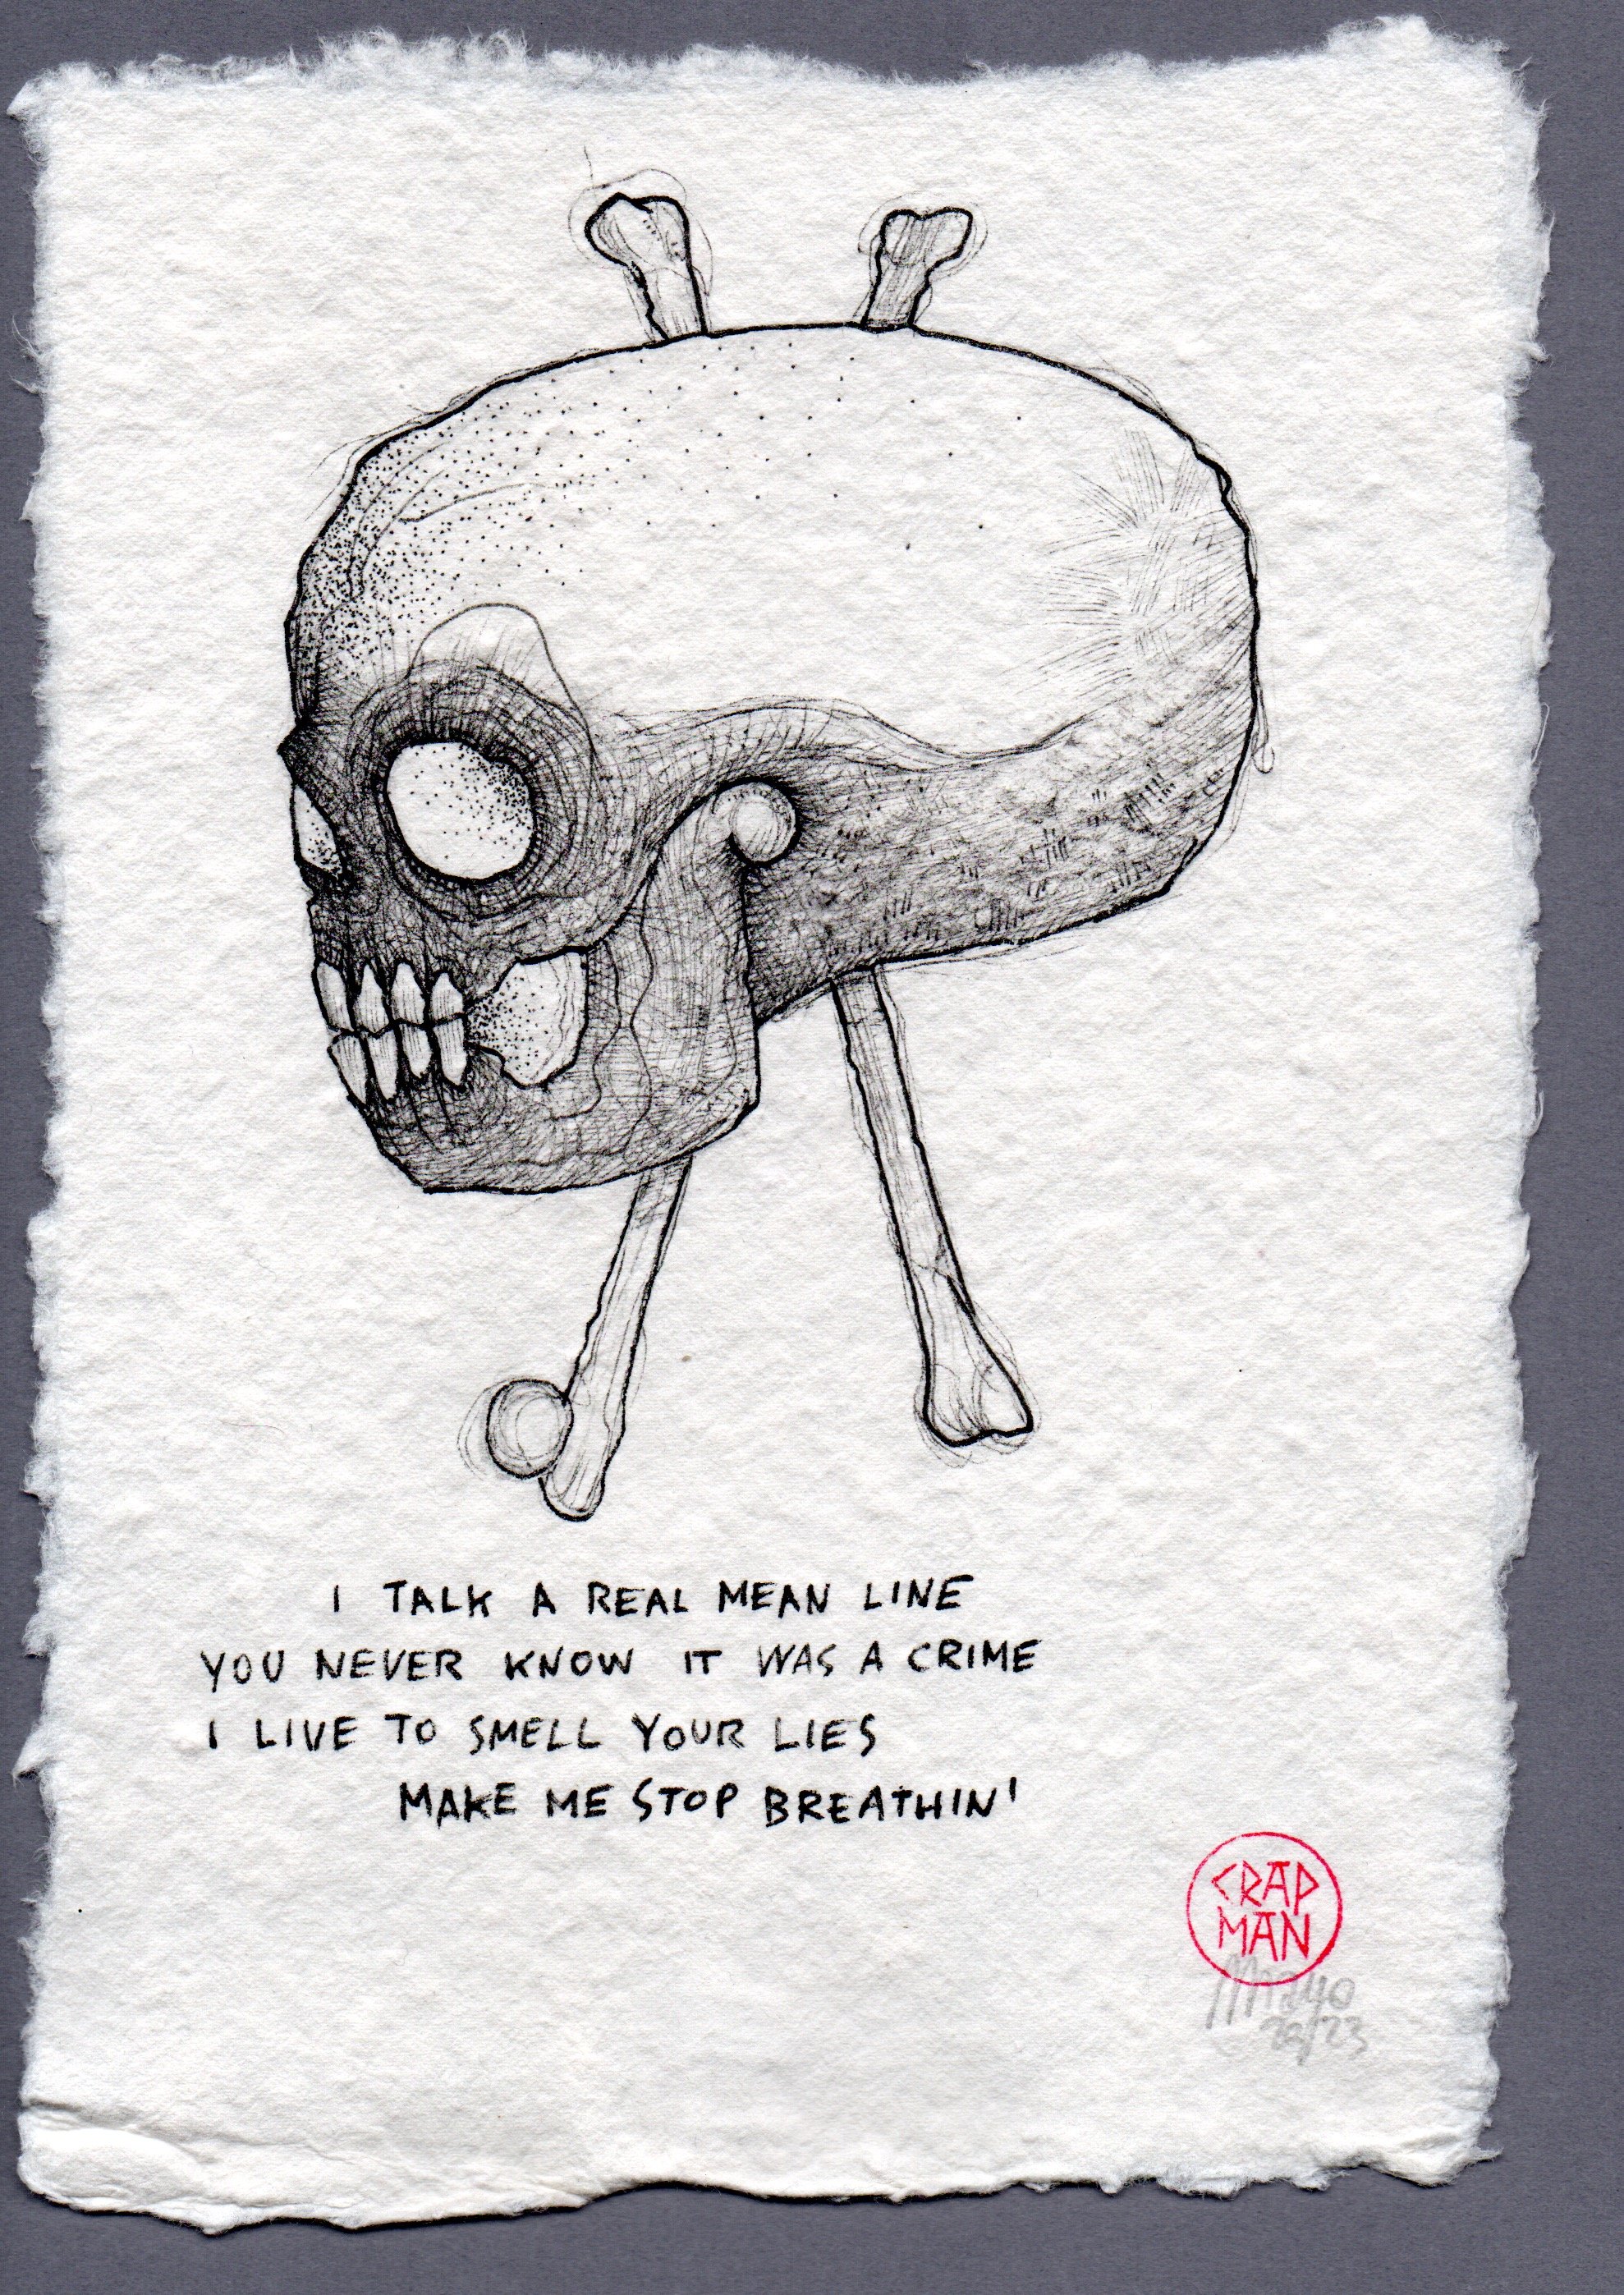 I TALK A REAL MEAN LINE
YOU NEVER KNOW IT WAS A CRIME
I LIVE TO SMELL YOUR LIES
MAKE ME STOP BREATHIN'
CRAP
MAN